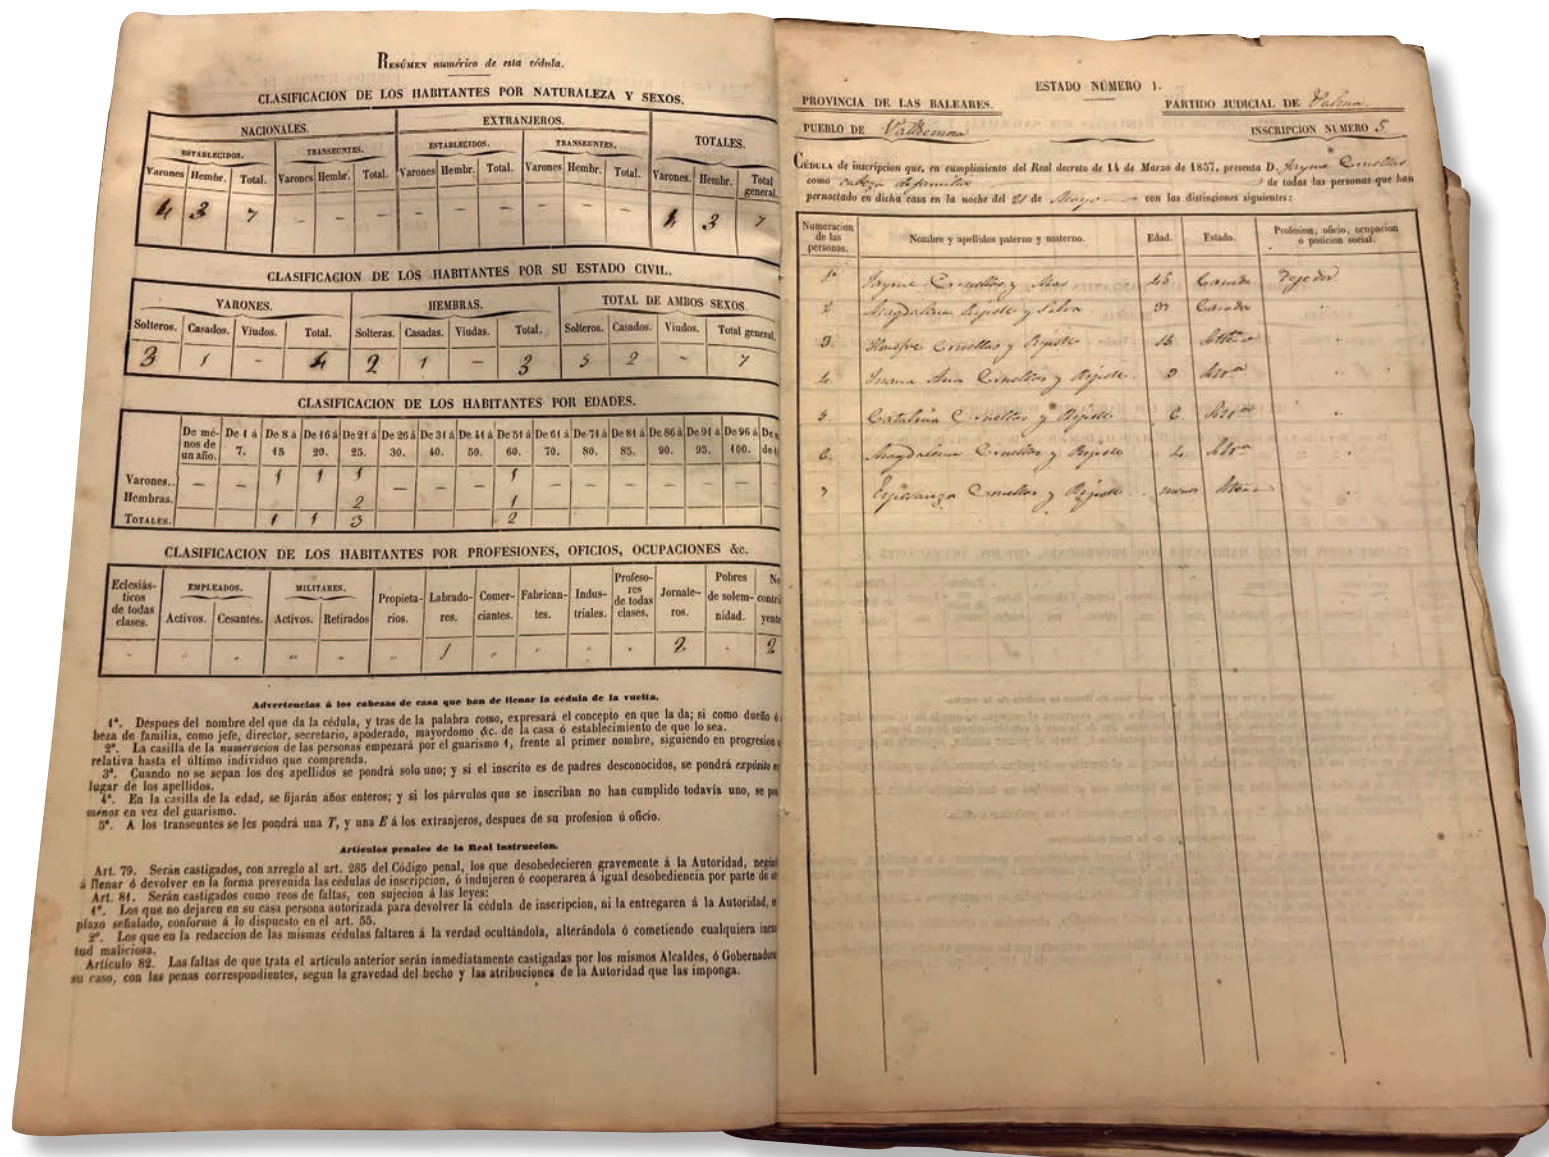 RESÚMEN numérico de esta cédula.
CLASIFICACION DE LOS HABITANTES POR NATURALEZA Y SEXOS.
NACIONALES. EXTRANJEROS. TOTALES.
ESTABLECIDOS. TRANSEUNTES. ESTABLECIDOS. TRANSEUNTES.
Varones Hembr. Total. Varones Hembr. Total. Varones Hembr. Total. Varones Hembr. Total. Varones. Hembr. Total general.
4 3 7 - - - - - - - - - 4 3 7
CLASIFICACION DE LOS HABITANTES POR SU ESTADO CIVIL.
VARONES. HEMBRAS. TOTAL DE AMBOS SEXOS.
Solteros. Casados. Viudos. Total. Solteras. Casadas. Viudas. Total. Solteros. Casados. Viudos. Total general.
3 1 - 4 2 1 - 3 5 2 - 7
CLASIFICACION DE LOS HABITANTES POR EDADES.
De ménos de un año. De 1 á 7. De 8 á 15 De 16 á 20. De 21 á 25. De 26 á 30. De 31 á 40. De 41 á 50. De 51 á 60. De 61 á 70. De 71 á 80. De 81 á 85. De 86 á 90. De 91 á 95. De 96 á 100.
Varones.. - - 1 1 1 - - - 1 - - - - - -
Hembras. 2 1
TOTALES. 1 1 3 2
CLASIFICACION DE LOS HABITANTES POR PROFESIONES, OFICIOS, OCUPACIONES &c.
Eclesiásticos de todas clases. EMPLEADOS. Activos. Cesantes. MILITARES. Activos. Retirados Propietarios. Labradores. Comerciantes. Fabricantes. Industriales. Profesores de todas clases. Jornaleros. Pobres de solemnidad.
1 2 2
Advertencias á los cabezas de casa que han de llenar la cédula de la vuelta.
1ª. Despues del nombre del que da la cédula, y tras de la palabra como, expresará el concepto en que la da; si como dueño ó
beza de familia, como jefe, director, secretario, apoderado, mayordomo &c. de la casa ó establecimiento de que lo sea.
2ª. La casilla de la numeracion de las personas empezará por el guarismo 1, frente al primer nombre, siguiendo en progresion
relativa hasta el último individuo que comprenda.
3ª. Cuando no se sepan los dos apellidos se pondrá solo uno; y si el inscrito es de padres desconocidos, se pondrá expósito
lugar de los apellidos.
4ª. En la casilla de la edad, se fijarán años enteros; y si los párvulos que se inscriban no han cumplido todavía uno, se
ménos en vez del guarismo.
5ª. A los transeuntes se les pondrá una T, y una E á los extranjeros, despues de su profesion ú oficio.
Artículos penales de la Real instruccion.
Art. 79. Serán castigados, con arreglo al art. 285 del Código penal, los que desobedecieren gravemente á la Autoridad,
á llenar ó devolver en la forma prevenida las cédulas de inscripcion, ó indujeren ó cooperaren á igual desobediencia por parte de
Art. 81. Serán castigados como reos de faltas, con sujecion á las leyes:
1º. Los que no dejaren en su casa persona autorizada para devolver la cédula de inscripcion, ni la entregaren á la Autoridad,
plazo señalado, conforme á lo dispuesto en el art. 55.
2º. Los que en la redaccion de las mismas cédulas faltaren á la verdad ocultándola, alterándola ó cometiendo cualquiera
tud maliciosa.
Artículo 82. Las faltas de que trata el artículo anterior serán inmediatamente castigadas por los mismos Alcaldes, ó
su caso, con las penas correspondientes, segun la gravedad del hecho y las atribuciones de la Autoridad que las imponga.
ESTADO NÚMERO 1.
PROVINCIA DE LAS BALEARES. PARTIDO JUDICIAL DE Palma
PUEBLO DE Valldemosa INSCRIPCION NUMERO 5
CÉDULA de inscripcion que, en cumplimiento del Real decreto de 14 de Marzo de 1857, presenta D. Jayme
como cabeza de familia de todas las personas que han
pernoctado en dicha casa en la noche del 21 de Mayo con las distinciones siguientes:
Numeracion de las personas. Nombre y apellidos paterno y materno. Edad. Estado. Profesion, oficio, ocupacion o posicion social.
1º Jayme y Mas 45 Casado Tejedor
2. Magdalena y Casada
3. y Soltero
4. Juana Ana y
5. Catalina y 6
6. Magdalena y 4
7 Esperanza y menos